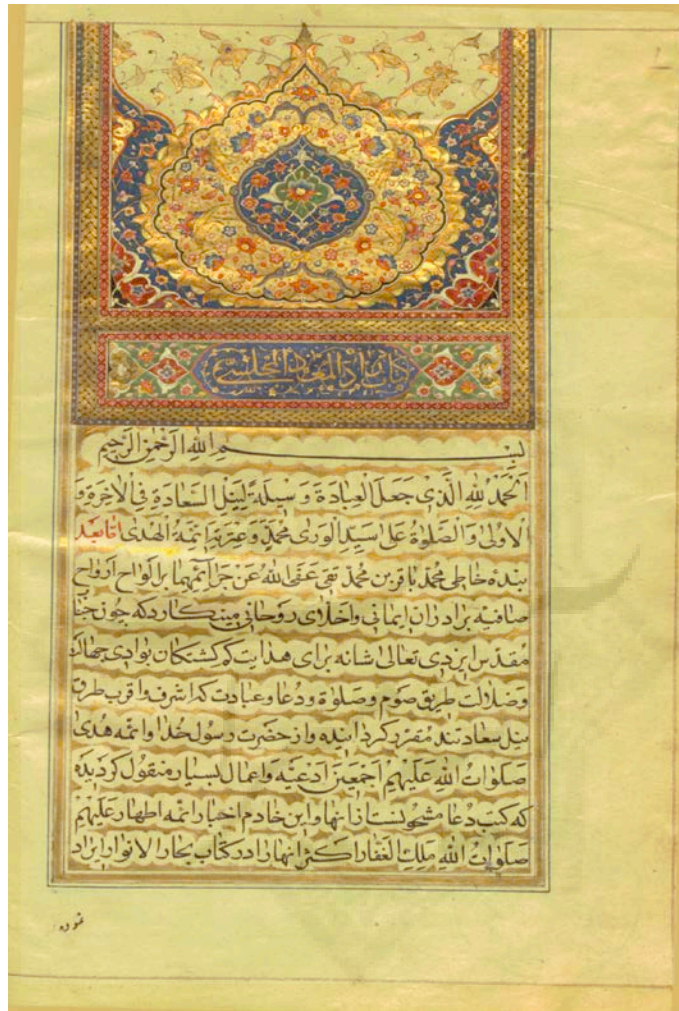 کتاب زاد المعاد للمجلسی
بسم الله الرحمن الرحیم
الحمد لله الذی جعل العبادة وسیلة لنیل السعادة فی الآخرة و
الاولی والصلوة علی سید الوری محمد وعترته ائمة الهدی اما بعد
بنده خاطی محمد باقر بن محمد تقی عفی الله عن جرائمهما بر الواح ارواح
صافیه برادران ایمانی واخلای روحانی مینکارد که چون جناب
مقدس ایزدی تعالی شانه برای هدایت کم کشتکان بوادی جهالت
وضلالت طریق صوم وصلوة ودعا وعبادت که اشرف واقرب طرق
نیل سعادتند مقرر کردانیده واز حضرت رسول خدا وائمه هدی
صلوات الله علیهم اجمعین ادعیه واعمال بسیار منقول کردیده
که کتب دعا مشحونست از انها واین خادم اخبار ائمه اطهار علیهم
صلوات الله ملک الغفار اکثر انها را در کتاب بحار الانوار ایراد
نموده